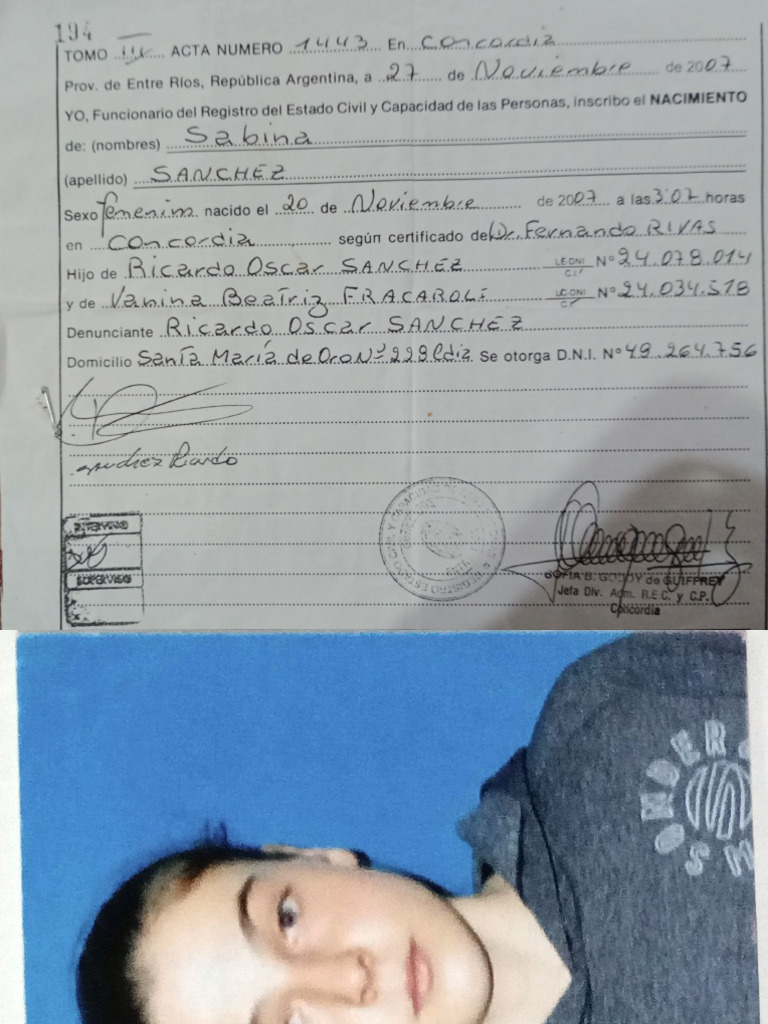 194
TOMO III ACTA NUMERO 1443 En Concordia
Prov. de Entre Ríos, República Argentina, a 27 de Noviembre de 2007
YO, Funcionario del Registro del Estado Civil y Capacidad de las Personas, inscribo el NACIMIENTO
de: (nombres) Sabina
(apellido) SANCHEZ
Sexo femenino nacido el 20 de Noviembre de 2007 a las 3:07 horas
en Concordia según certificado del Dr. Fernando RIVAS
Hijo de Ricardo Oscar SANCHEZ LE DNI C.I. Nº 24.078.014
y de Vanina Beatriz FRACAROLI LC DNI C.I. Nº 24.034.518
Denunciante Ricardo Oscar SANCHEZ
Domicilio Santa María de Oro Nº 229 Cdia Se otorga D.N.I. Nº 49.264.756
Sanchez Ricardo
INTERVINO
SUPERVISO
SOFIA B. GODOY de GUIFFREY
Jefa Div. Adm. R.E.C. y C.P.
Concordia